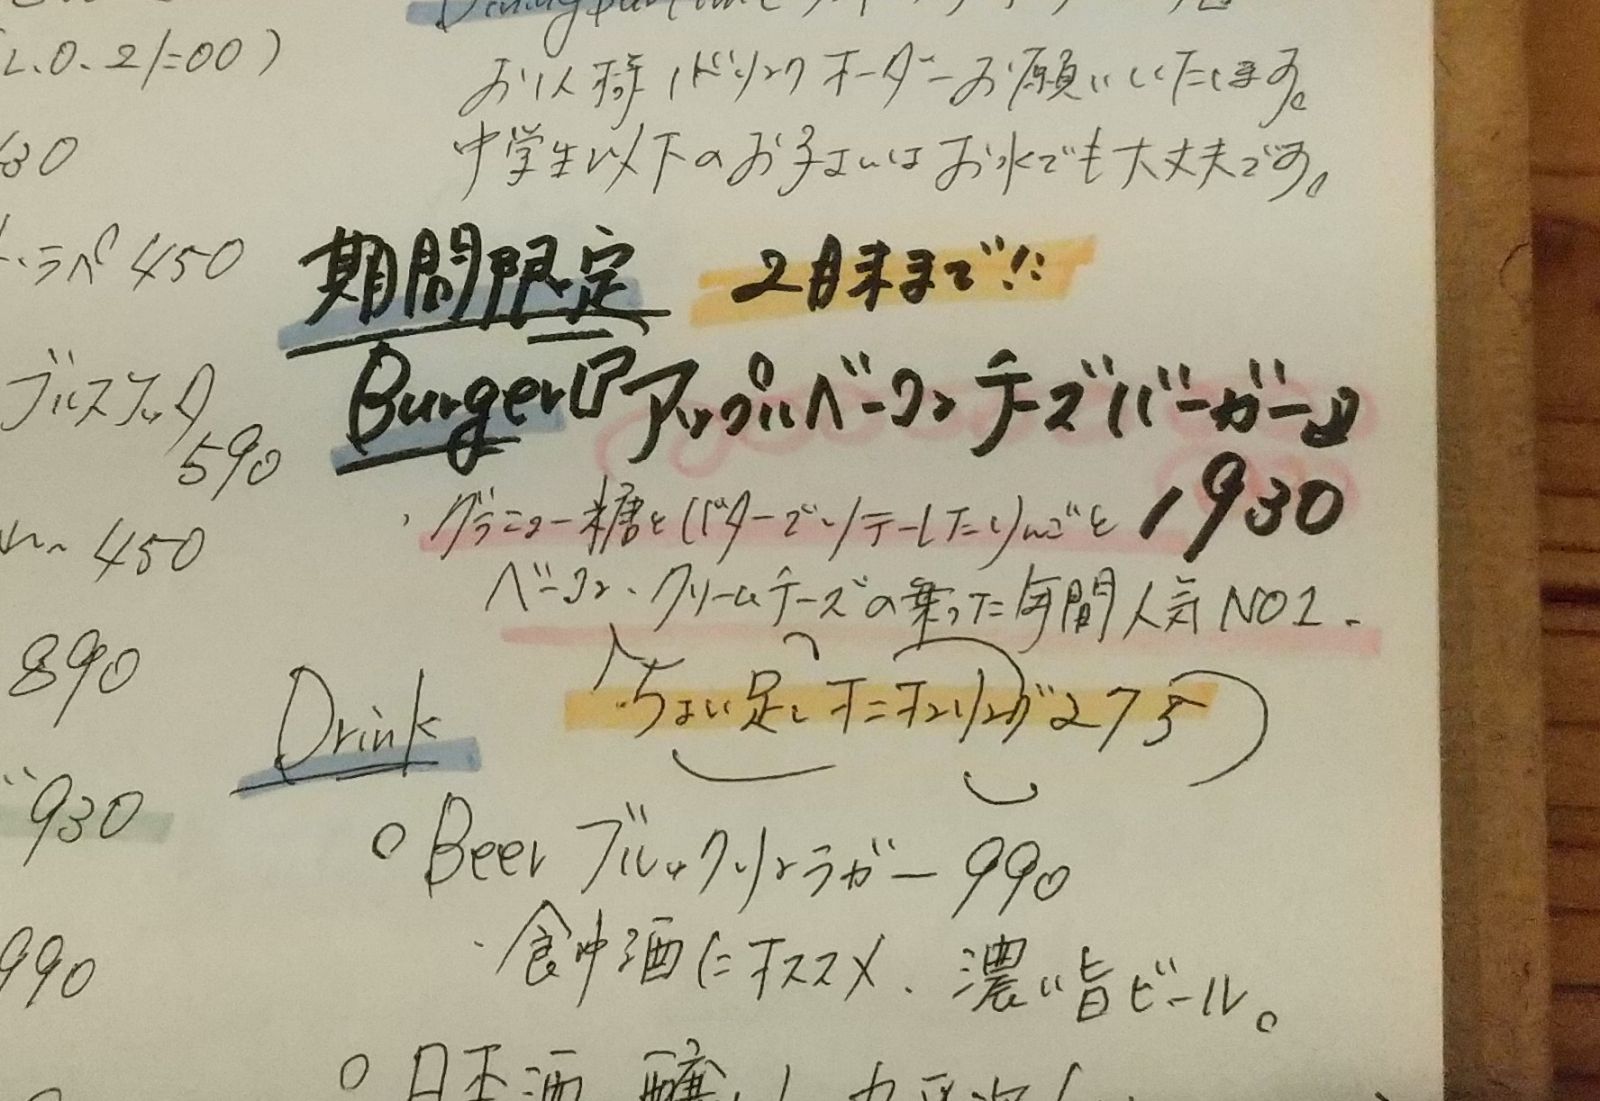 (L.O. 21:00)
お1人様1ドリンクオーダーお願いいたします。
中学生以下のお子さまはお水でも大丈夫です。
期間限定 2月末まで!!
450
Burger『アップルベーコンチーズバーガー』
ブルスケッタ
590
1930
・グラニュー糖とバターでソテーしたりんごと
450
ベーコン、クリームチーズの乗った年間人気NO1.
890
ちょい足しオニオンリング275
Drink
930
○Beer ブルックリンラガー 990
990
・食中酒にオススメ、濃い旨ビール。
○日本酒